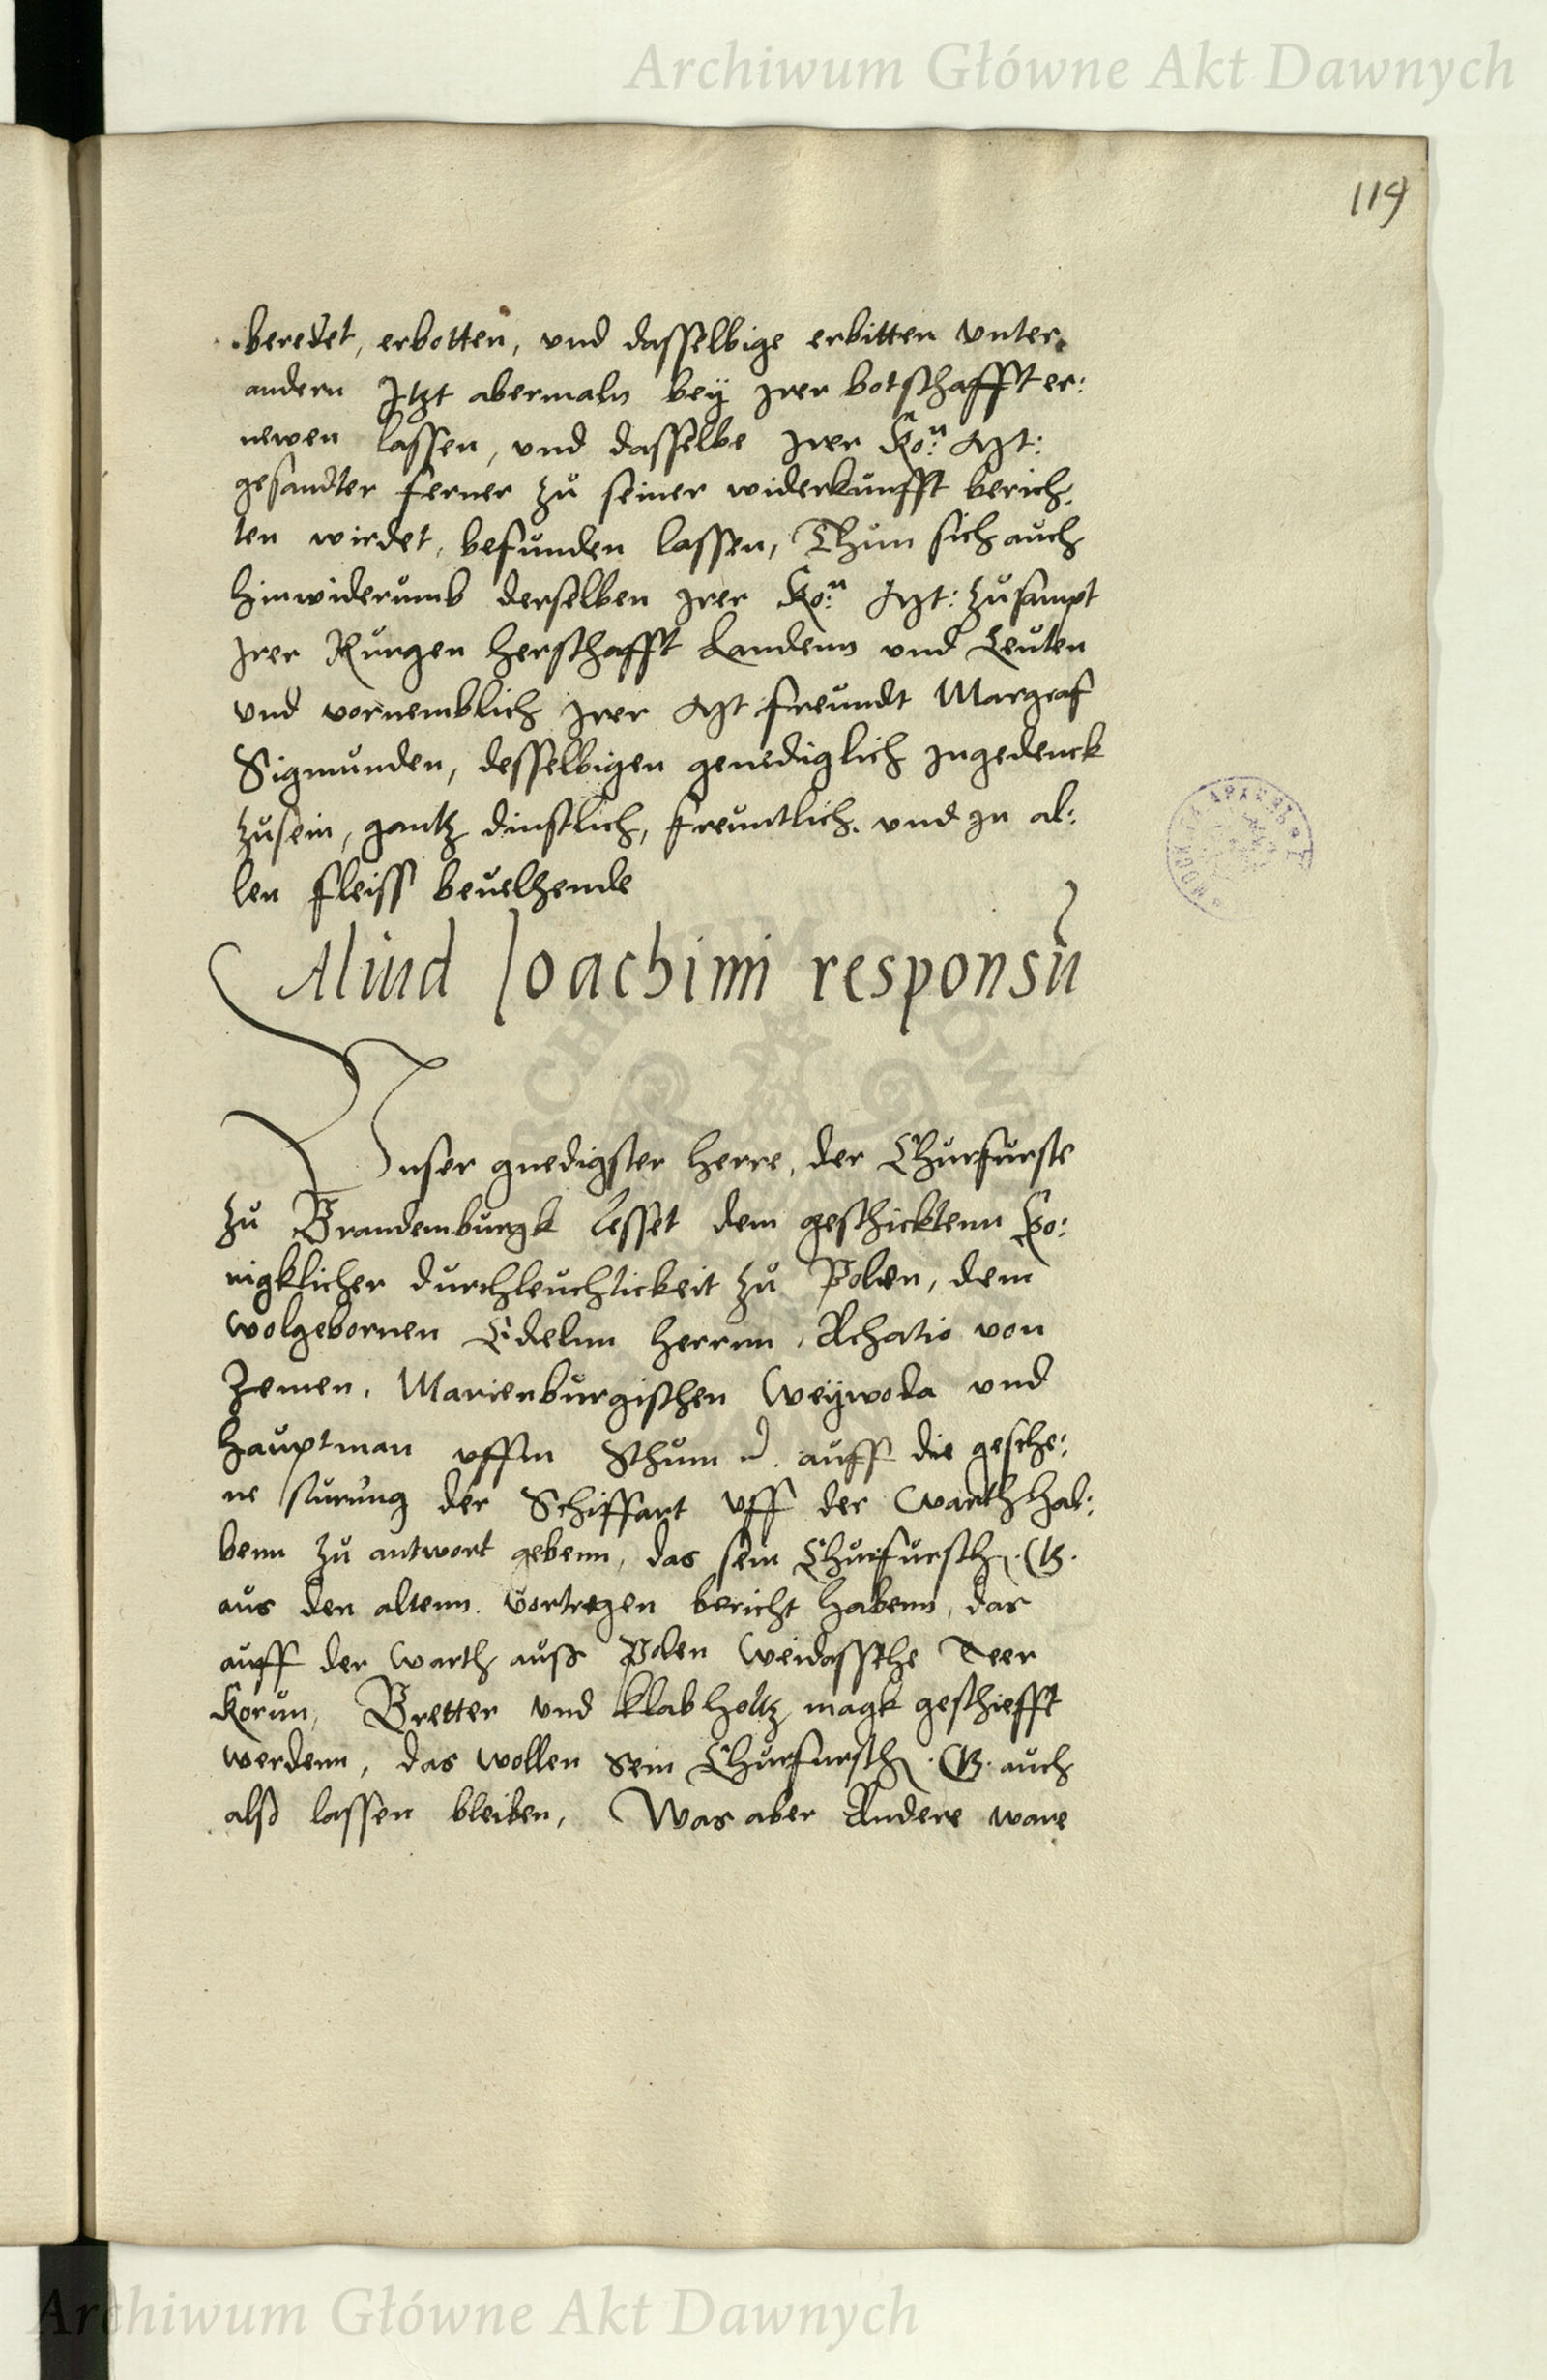 Archiwum Główne Akt Dawnych
119
beredet, erbotten, und dasselbige erbitten unter
andern Itzt abermaln bey Irer botschafft er:
newen lassen, und dasselbe Irer Kön: Mt:
gesandter ferner zu seiner widerkunfft berich,
ten wirdet, befunden lassen, Thun sich auch
hinwiderumb derselben Irer Kön: Mt: zusampt
Irer Jungen herschafft Landenn und Leuten
und vornemblich Irer Mt freundt Margraf
Sigmunden, desselbigen genediglich Ingedenck
zusein, gantz dinstlich, freuntlich. und In al:
len fleiss beuelhende
Aliud Ioachimi responsũ
Unser gnedigster herre, der Churfurste
zu Brandemburgk lesset dem geschicktenn Ko:
nigklicher durchleuchtickeit zu Polen, dem
wolgebornen Edelnn herrnn, Achatio von
Zemen, Marienburgischen Weywoda und
hauptman uffm Schum auff die gesche:
ne der Schiffart uff der Warth hal:
benn zu antwort gebenn, das sein Churfurstl. G.
aus den altenn vortregen bericht habenn, das
auff der Warth auss Polen Weidassche Teer
Kornn, Bretter und klabholtz magk geschiefft
werdenn, das wollen sein Churfurstl. G. auch
also lassen bleiben, Was aber Andere ware
Archiwum Główne Akt Dawnych